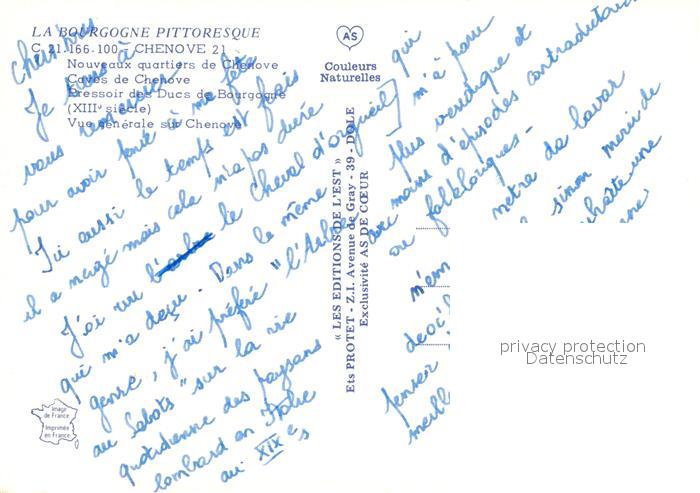 LA BOURGOGNE PITTORESQUE
C 21.166.100 - CHENOVE 21
Nouveaux quartiers de Chenove
Caves de Chenove
Pressoir des Ducs de Bourgogne
(XIIIe siècle)
Vue générale sur Chenove
AS
Couleurs
Naturelles
« LES EDITIONS DE L'EST »
Ets PROTET - Z.I. Avenue de Gray - 39 - DOLE
Exclusivité AS DE CŒUR
Image
de France
Imprimée
en France
Je tiens à
vous remercier
pour avoir fêté ma fête
J'ai aussi le temps est frais
il a neigé mais cela n'a pas duré
J'ai vu le Cheval d'orgueil qui
qui m'a déçu. Dans le même
genre, j'ai préféré "l'Arbre
au sabots" sur la vie
quotidienne des paysans
lombard en Italie
au XIX e s
m'a paru
plus véridique et
avec moins d'épisodes contradictoires
ou folkloriques -
metra de
sinon merci de
une
n'em
penser
meill
privacy protection
Datenschutz